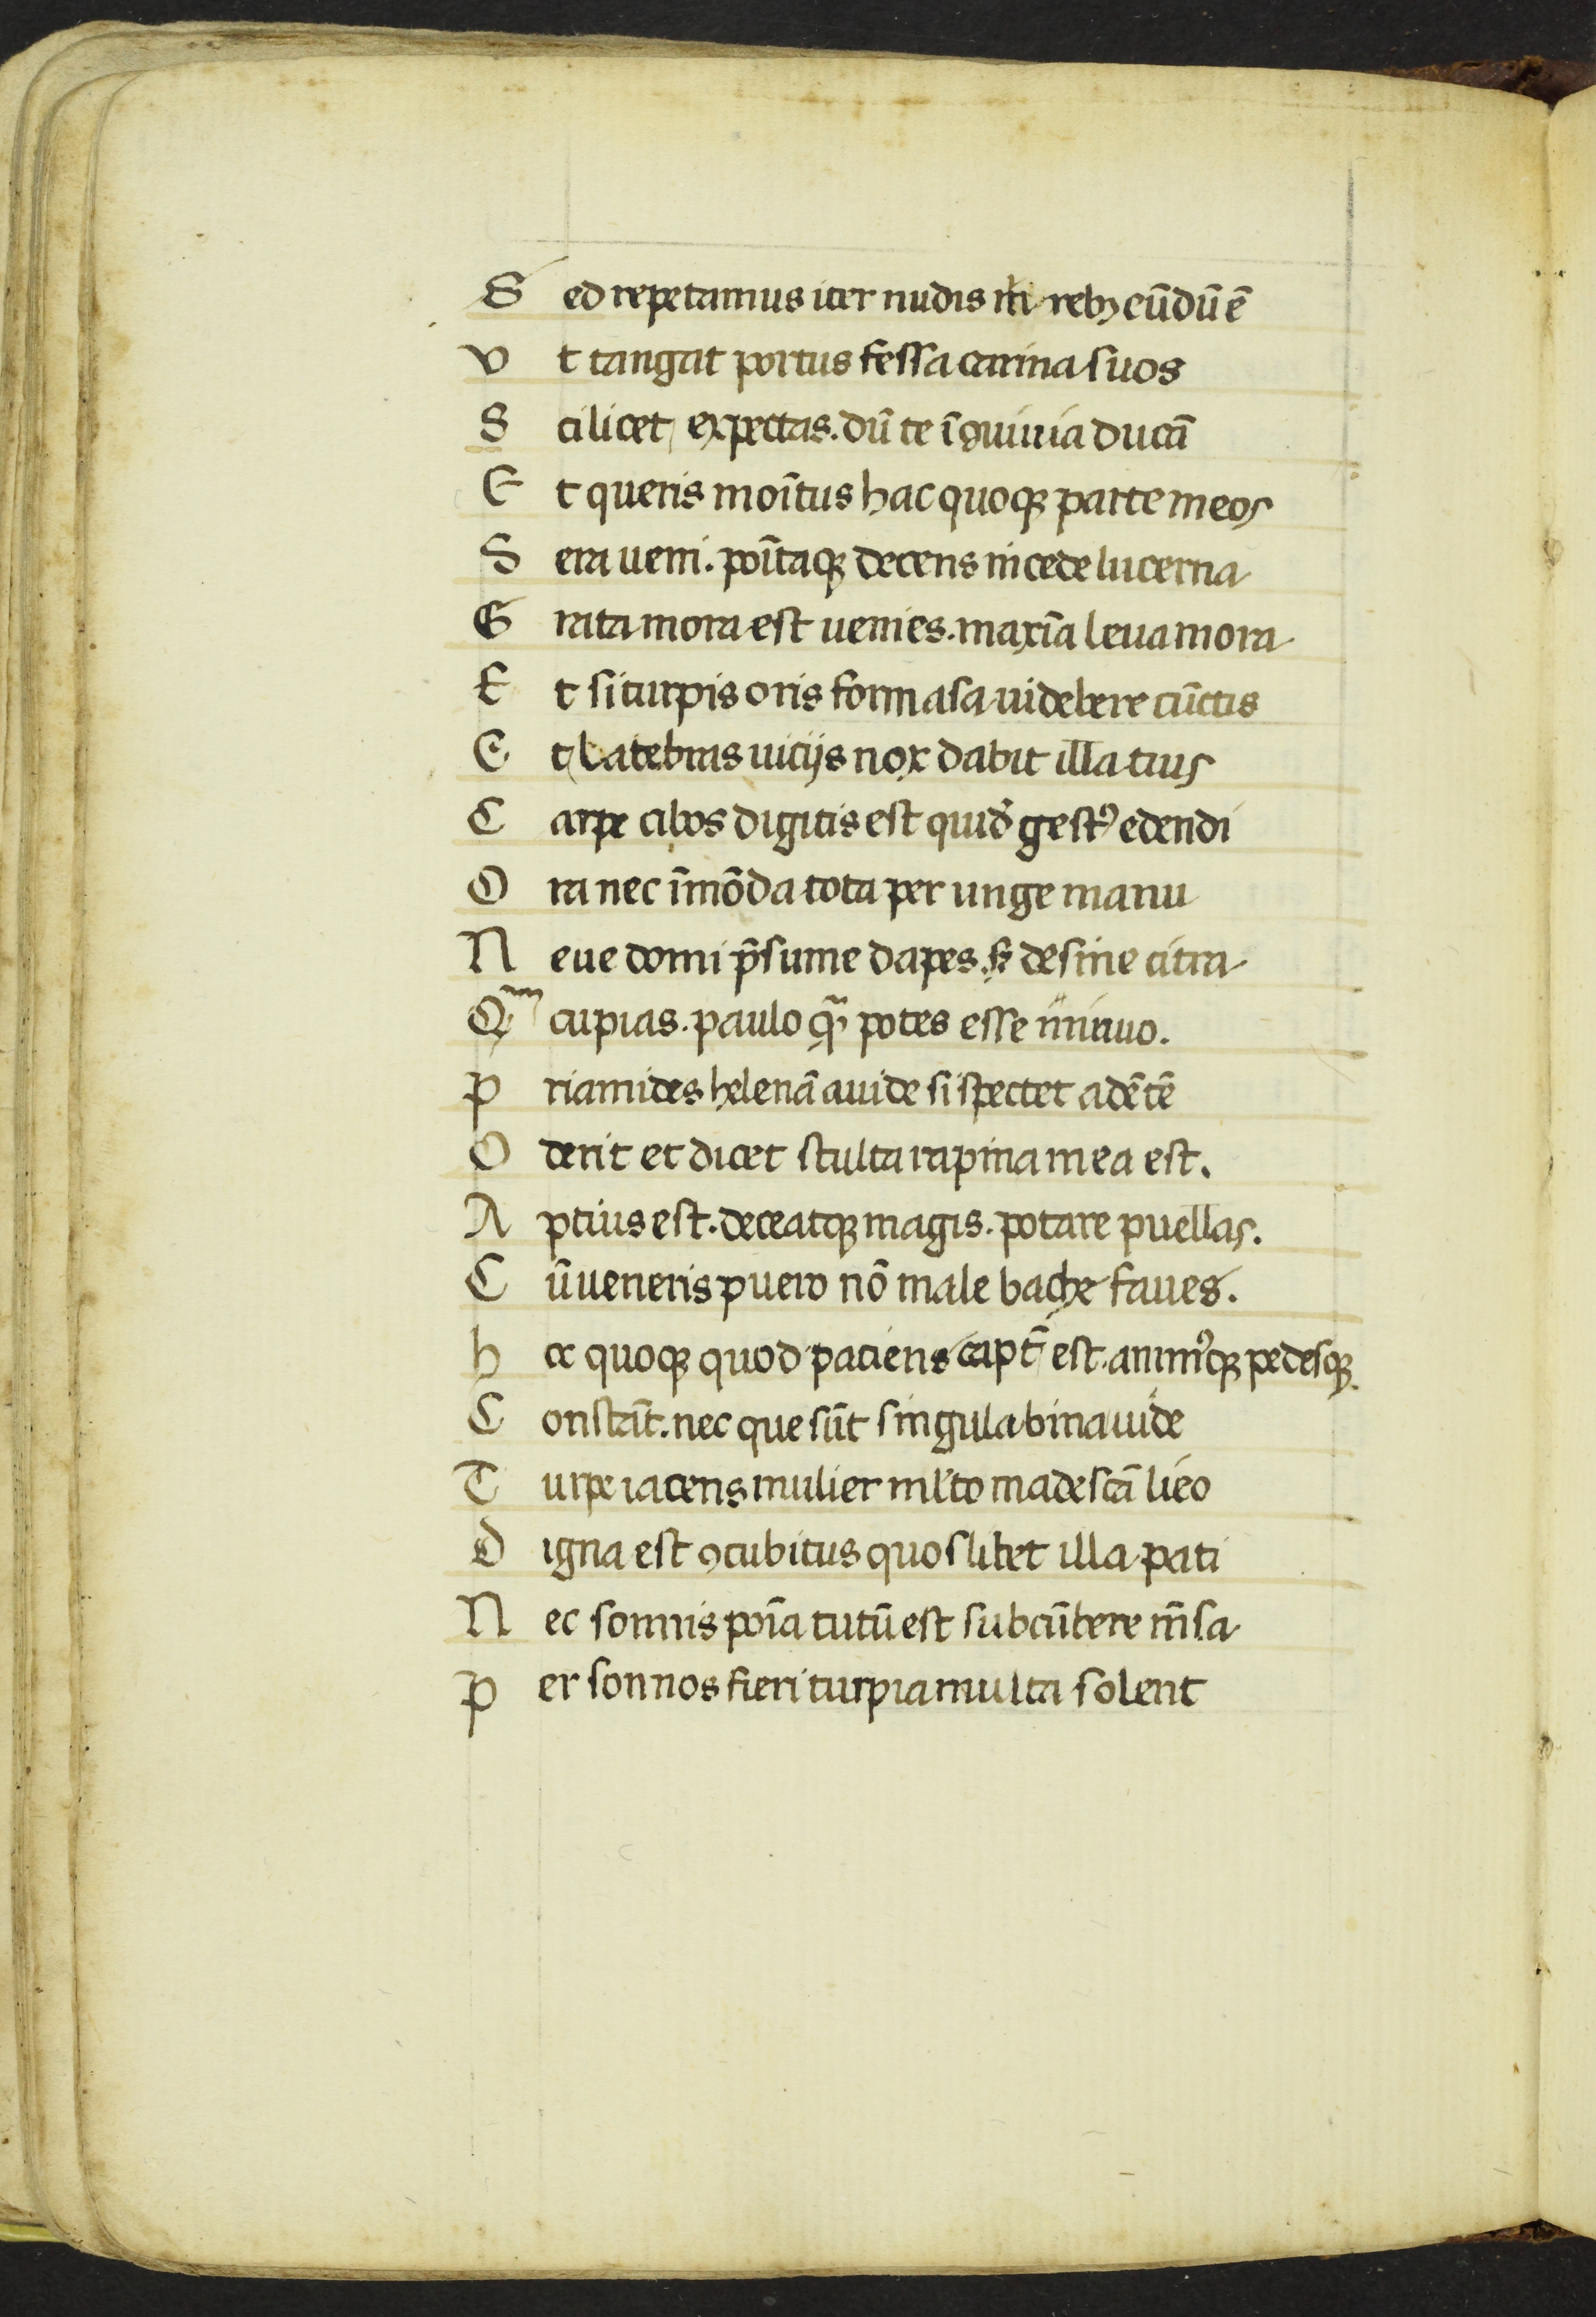 Sed repetamus iter nudis m̃i rebꝫ eũdũ ẽ
Vt tangat portus fessa carina suos
Scilicet expectas. dũ te ĩ ꝯuiuia ducã
Et queris moĩtus hac quoqꝫ parte meos
Sera ueni. poĩtaqꝫ decens incede lucerna
Grata mora est uenies. maxĩa leua mora
Et si turpis oris formasa uidebere cũctis
Et latebras uicijs nox dabit illa tuis
Carpe cibos digitis est quid̃ gestꝰ edendi
Ora nec ĩmõda tota per unge manu
Neue domi p̃sume dapes. sꝫ desine citra
Qm̃ cupias. paulo qm̃ potes esse
Priamides helenã auide si spectet adẽtẽ
Oderit et dicet stulta rapina mea est.
Aptius est. deceatqꝫ magis. potare puellas.
Cũ ueneris puero nõ male bache faues.
hec quoqꝫ quod patiens capt̃ est. animꝰqꝫ pedesqꝫ
Constãt. nec que sũt singula bina uide
Turpe iacens mulier ml̃to madescã lieo
Digna est ꝯcubitus quoslibet illa pati
Nec somnis poĩa tutũ est subcũbere m̃sa
Per sonnos fieri turpia multa solent